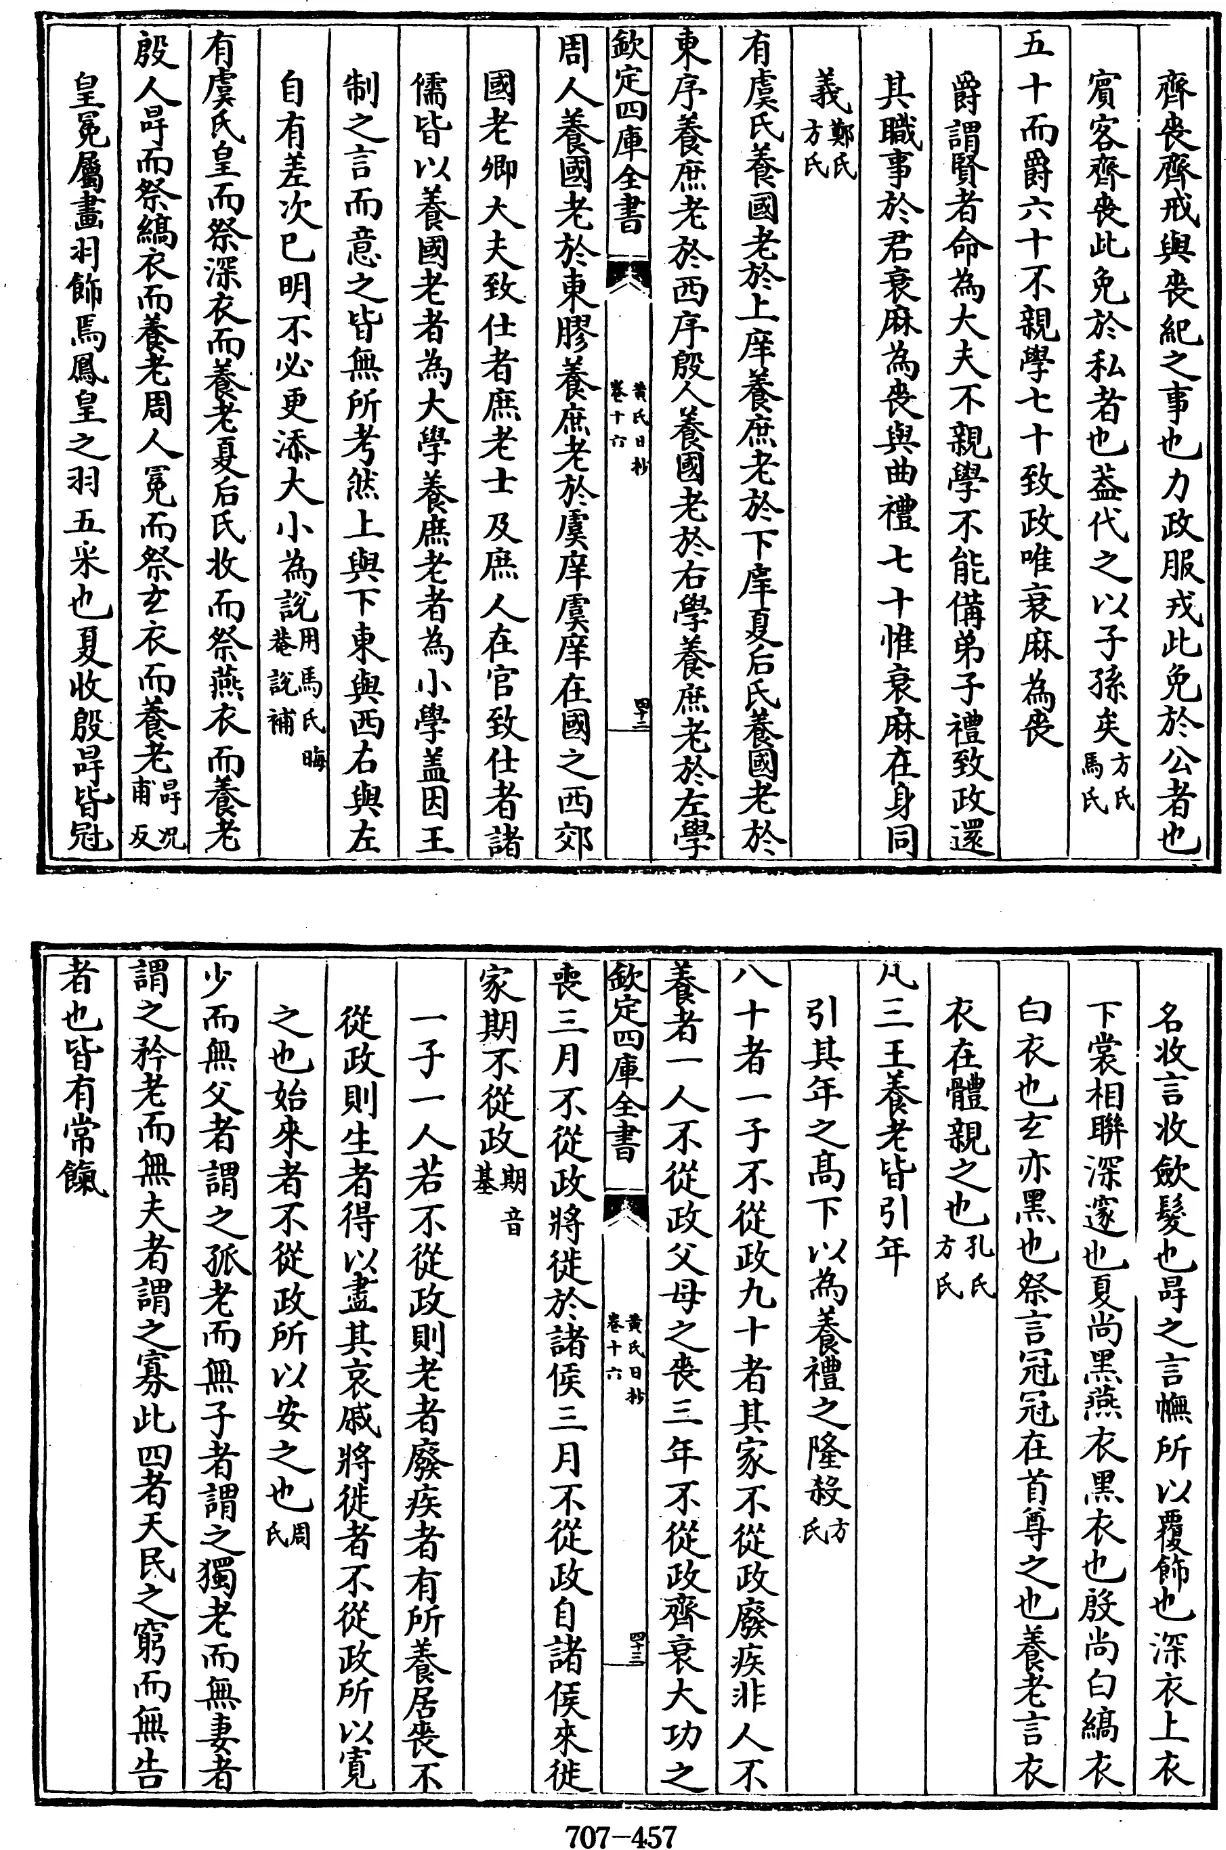 齊喪齊戒與喪紀之事也力政服戎此免於公者也
賔客齊喪此免於私者也葢代之以子孫矣方氏馬氏
五十而爵六十不親學七十致政唯衰麻為喪
爵謂賢者命為大夫不親學不能備弟子禮致政還
其職事於君衰麻為喪與曲禮七十惟衰麻在身同
義鄭氏方氏
有虞氏養國老於上庠養庶老於下庠夏后氏養國老於
東序養庶老於西序殷人養國老於右學養庶老於左學
欽定四庫全書
黄氏日抄
卷十六
四十二
周人養國老於東膠養庶老於虞庠虞庠在國之西郊
國老卿大夫致仕者庶老士及庶人在官致仕者諸
儒皆以養國老者為大學養庶老者為小學盖因王
制之言而意之皆無所考然上與下東與西右與左
自有差次巳明不必更添大小為説用馬氏晦菴説補
有虞氏皇而祭深衣而養老夏后氏收而祭燕衣而養老
殷人冔而祭縞衣而養老周人冕而祭玄衣而養老冔况甫反
皇冕屬畫羽飾焉鳳皇之羽五采也夏收殷冔皆冠
名收言收斂髮也冔之言幠所以覆飾也深衣上衣
下裳相聨深邃也夏尚黑燕衣黒衣也殷尚白縞衣
白衣也玄亦黑也祭言冠冠在首尊之也養老言衣
衣在體親之也孔氏方氏
凡三王養老皆引年
引其年之髙下以為養禮之隆殺方氏
八十者一子不從政九十者其家不從政廢疾非人不
養者一人不從政父母之喪三年不從政齊衰大功之
欽定四庫全書
黄氏日抄
卷十六
四十三
喪三月不從政將徙於諸侯三月不從政自諸侯來徙
家期不從政期音基
一子一人若不從政則老者廢疾者有所養居喪不
從政則生者得以盡其哀戚將徙者不從政所以寛
之也始來者不從政所以安之也周氏
少而無父者謂之孤老而無子者謂之獨老而無妻者
謂之矜老而無夫者謂之寡此四者天民之窮而無告
者也皆有常餼
707-457